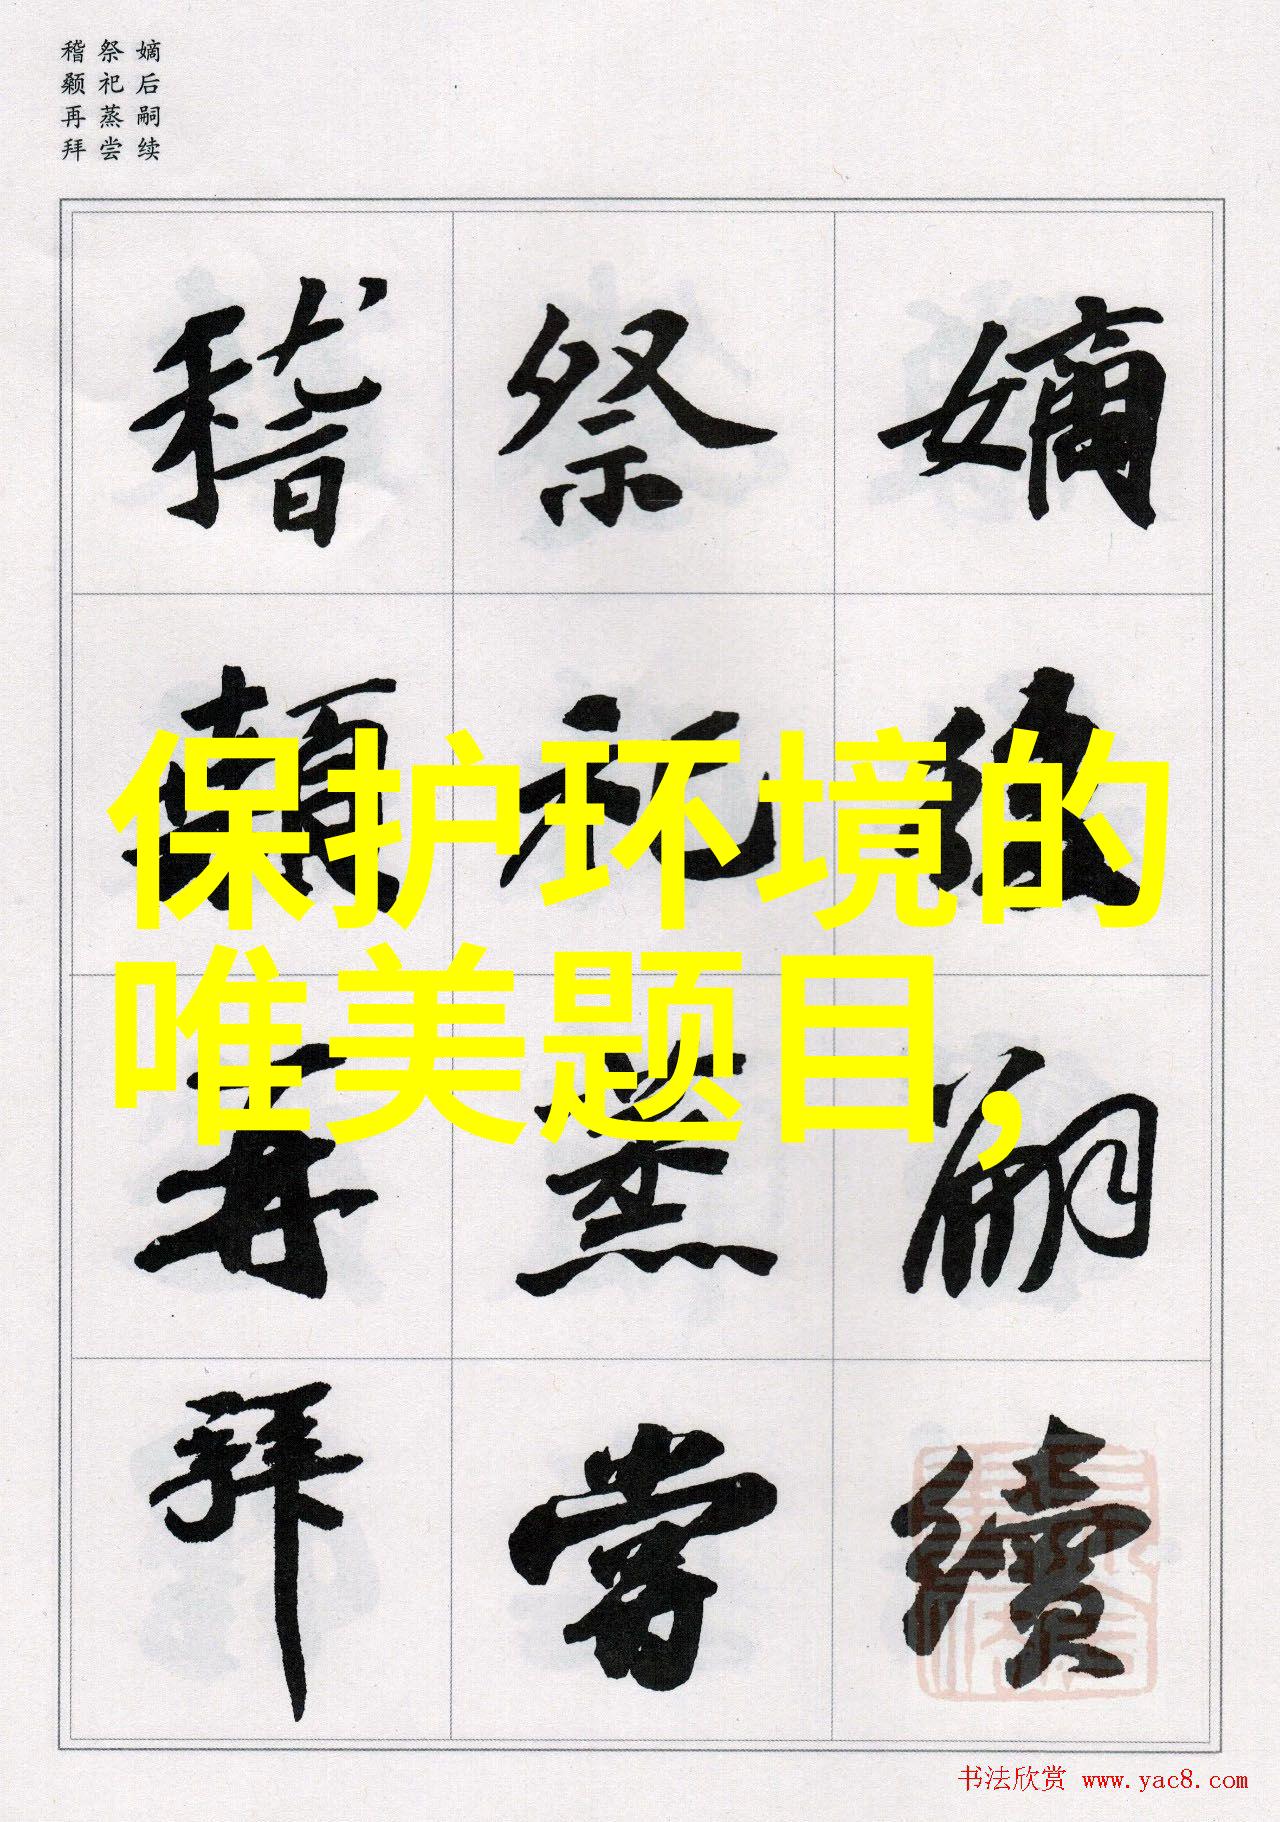 嫡后嗣续
祭祀蒸尝
稽颡再拜
嫡後嗣續
祭祀蒸嘗
稽顙再拜
保护环境的
唯美题目,
书法欣赏 www.yac8.com